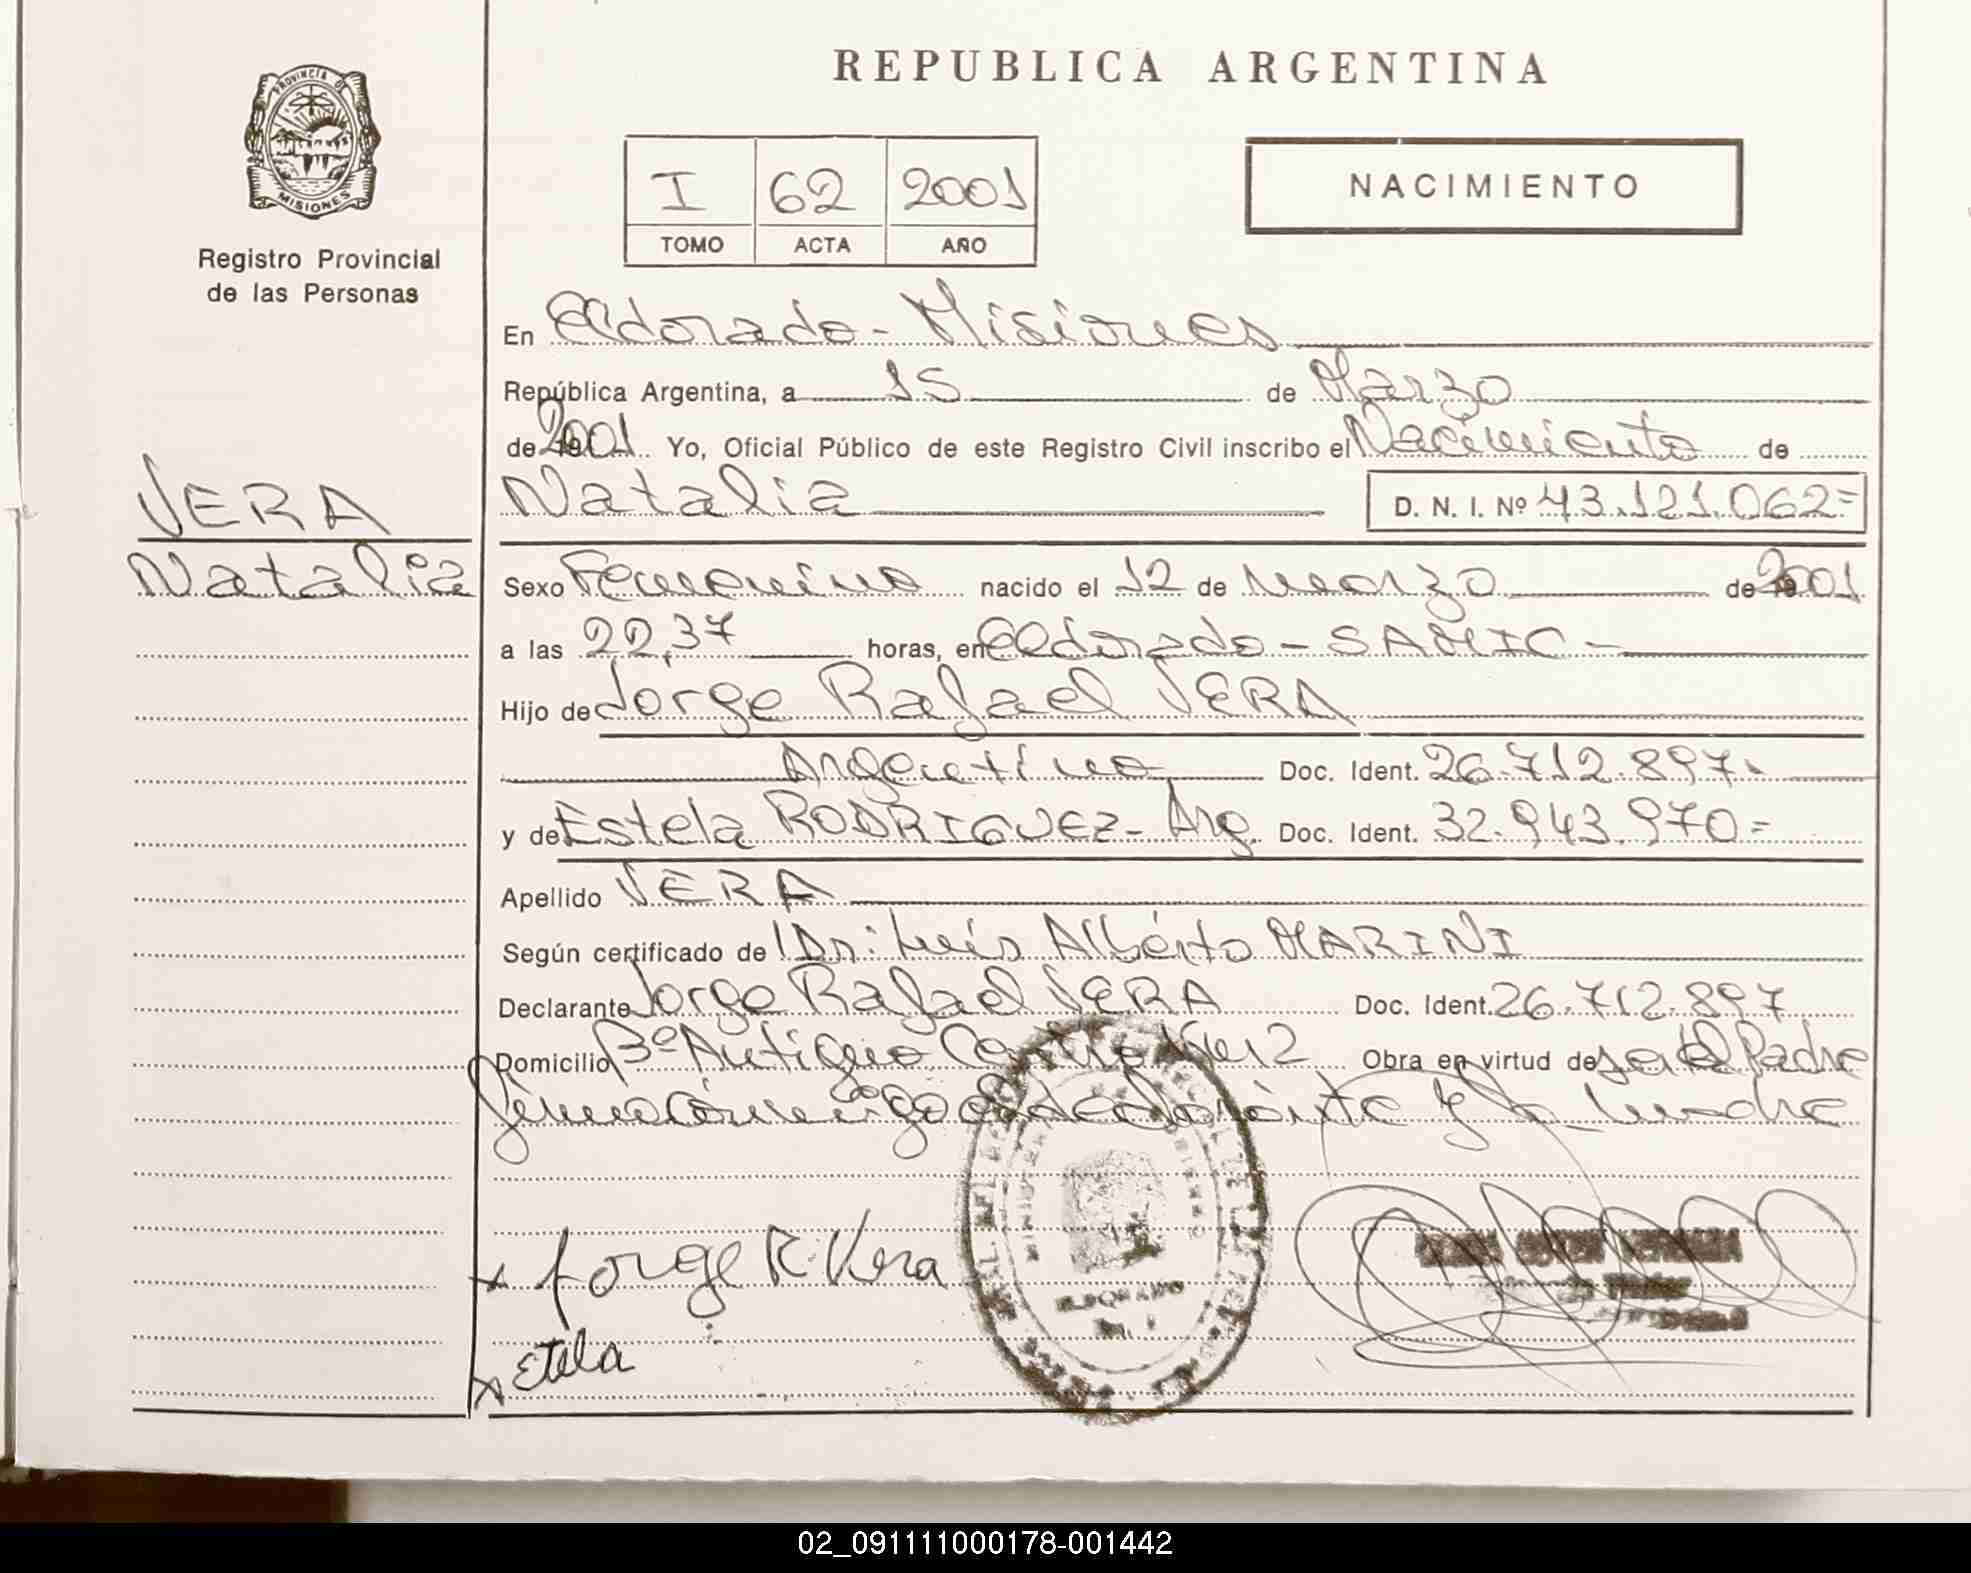 REPUBLICA ARGENTINA
PROVINCIA DE
MISIONES
Registro Provincial
de las Personas
I 62 2001
TOMO ACTA AÑO
NACIMIENTO
En Eldorado - Misiones
República Argentina, a 15 de Marzo
de 2001 Yo, Oficial Público de este Registro Civil inscribo el Nacimiento de
VERA
Natalia
Natalia D. N. I. Nº 43.121.062=
Sexo Femenino nacido el 12 de marzo de 2001
a las 22,37 horas, en Eldorado - SAMIC -
Hijo de Jorge Rafael VERA
Argentino Doc. Ident. 26.712.897.
y de Estela RODRIGUEZ - Arg. Doc. Ident. 32.943.970=
Apellido VERA
Según certificado de Dr: Luis Alberto MARINI
Declarante Jorge Rafael VERA Doc. Ident. 26.712.897
Domicilio Bº Antiguo Control Obra en virtud de ser el Padre
firma conmigo el declarante y la madre
x Jorge R. Vera
x Etela
ELDORADO
02_091111000178-001442